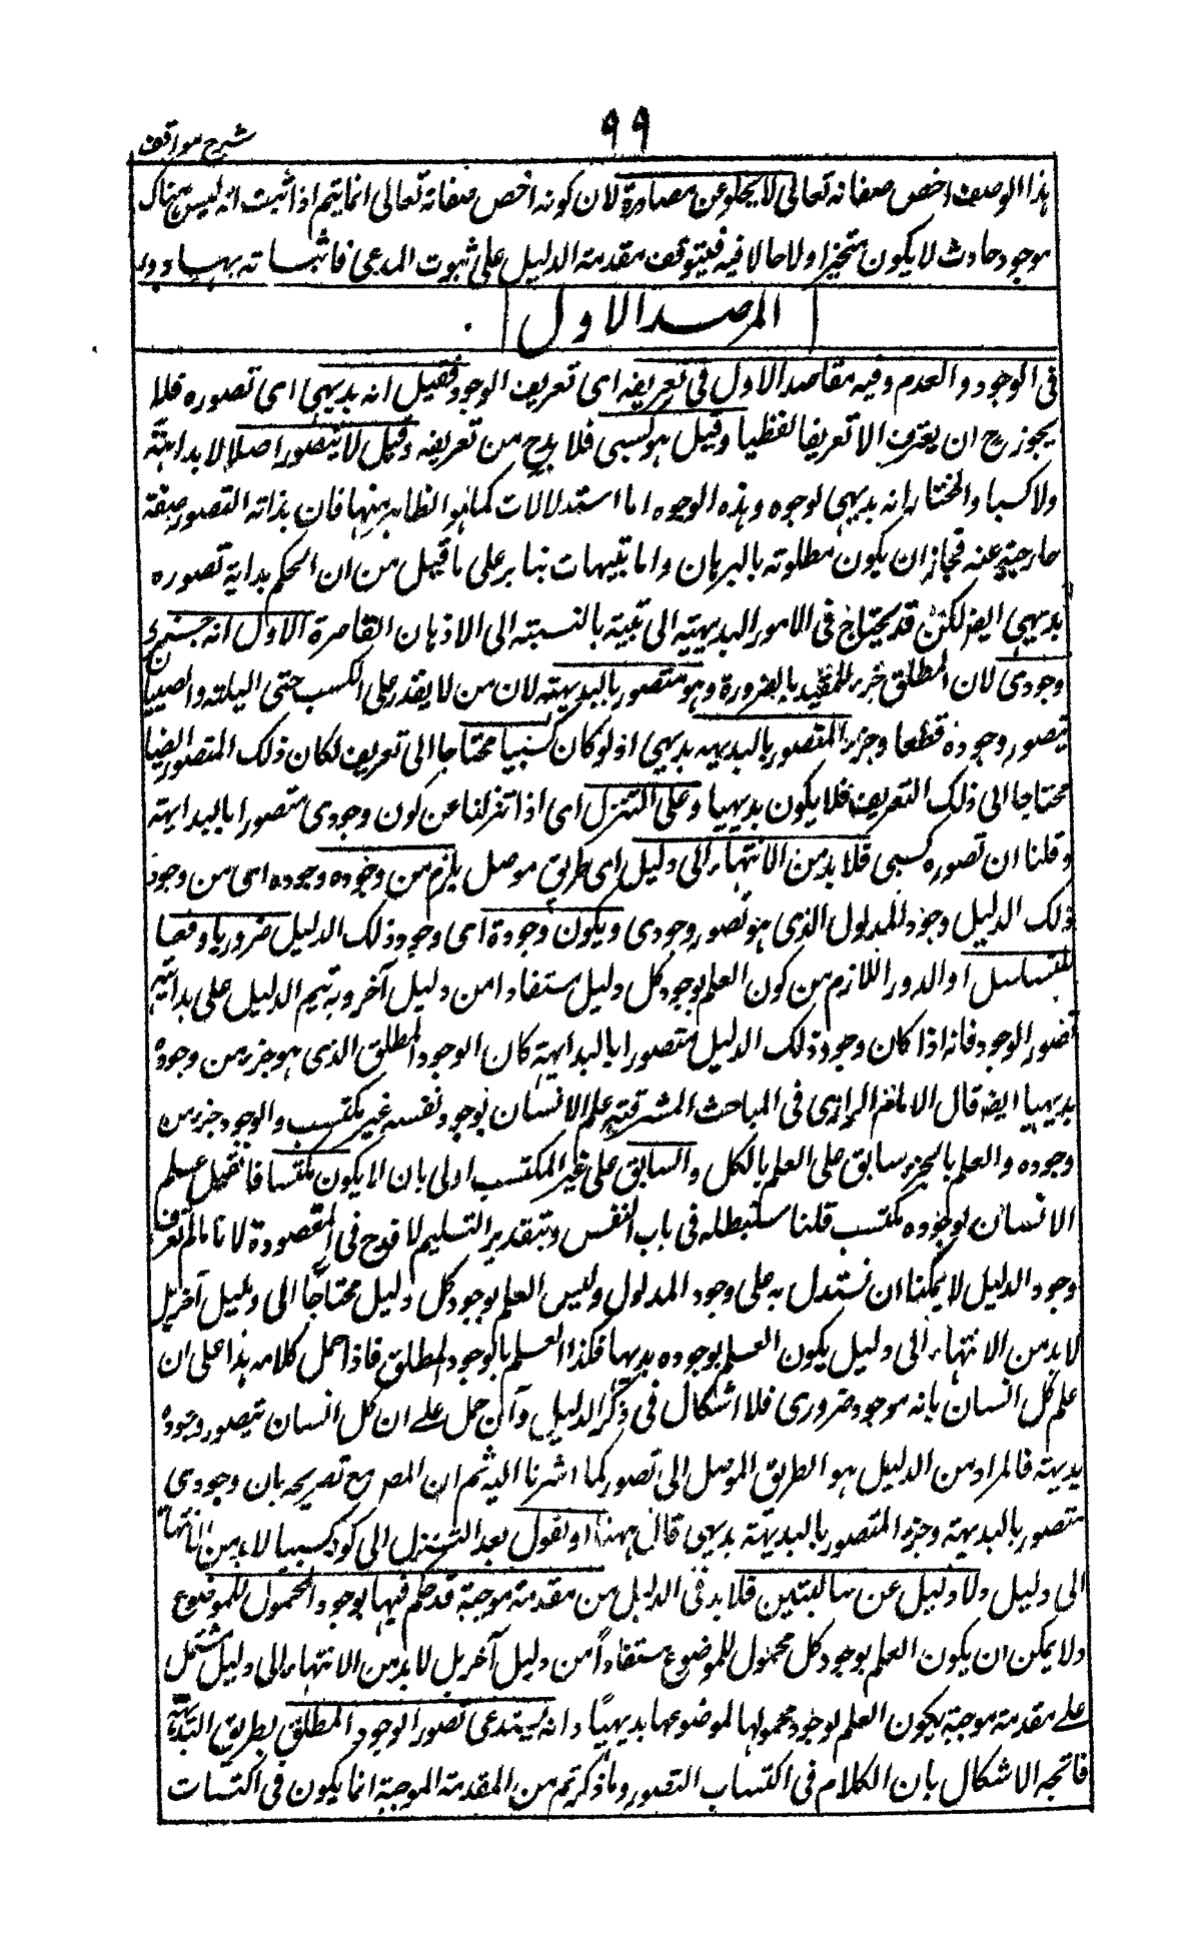 شرح مواقف
٩٩
هذا الوصف اخص صفاته تعالى لا يخلو عن مصادرة لان كونه اخص صفاته تعالى انما يتم اذا ثبت انه ليس هناك
موجود حادث لا يكون متحيزا ولا حالا فيه فيتوقف مقدمة الدليل على ثبوت المدعى فاثباته بها دور
المرصد الاول
فى الوجود والعدم وفيه مقاصد الاول فى تعريفه اى تعريف الوجود فقيل انه بديهى اى تصوره فلا
يجوز ح ان يعرف الا تعريفا لفظيا وقيل هو كسبى فلا بد ح من تعريفه وقيل لا يتصور اصلا لا بداهة
ولا كسبا والمختار انه بديهى لوجوه وهذه الوجوه اما استدلالات كما هو الظاهر منها فان بداهة التصور صفة
خارجية عنه فجاز ان يكون مطلوبة بالبرهان واما تنبيهات بناء على ما قيل من ان الحكم بداهة تصوره
بديهى ايضا لكن قد يحتاج فى الامور البديهية الى تنبيه بالنسبة الى الاذهان القاصرة الاول انه جزء من
وجودى لان المطلق جزء للمقيد بالضرورة وهو متصور بالبديهة لان من لا يقدر على الكسب حتى البله والصبيان
يتصور وجوده قطعا وجزء المتصور بالبديهه بديهى اذ لو كان كسبيا محتاجا الى تعريف لكان ذلك المتصور ايضا
محتاجا الى ذلك التعريف فلا يكون بديهيا وعلى التنزل اى اذا تنزلنا عن كون وجودى متصورا بالبداهة
وقلنا ان تصوره كسبى فلا بد من الانتهاء الى دليل اى طريق موصل يلزم من وجوده وجوده اى من وجود
ذلك الدليل وجود المدلول الذى هو تصور وجودى ويكون وجوده اى وجود ذلك الدليل ضروريا دفعا
للتسلسل او الدور اللازم من كون العلم بوجود كل دليل مستفادا من دليل آخر وبه يتم الدليل على بداهة
تصور الوجود فانه اذا كان وجود ذلك الدليل متصورا بالبداهة كان الوجود المطلق الذى هو جزء من وجوده
بديهيا ايضا قال الامام الرازى فى المباحث المشرقية علم الانسان بوجود نفسه غير مكتسب والوجود جزء من
وجوده والعلم بالجزء سابق على العلم بالكل والسابق على غير المكتسب اولى بان لا يكون مكتسبا فان قيل علم
الانسان بوجوده مكتسب قلنا سنبطله فى باب النفس وبتقدير التسليم لا قدح فى المقصود لانا ما لم نعرف
وجود الدليل لا يمكننا ان نستدل به على وجود المدلول وليس العلم بوجود كل دليل محتاجًا الى دليل آخر بل
لا بد من الانتهاء الى دليل يكون العلم بوجوده بديهيا فكذا العلم بالوجود المطلق فاذا حمل كلامه هذا على ان
علم كل انسان بانه موجود ضرورى فلا اشكال فى ذكر الدليل وان حمل على ان كل انسان يتصور وجوده
بديهة فالمراد من الدليل هو الطريق الموصل الى تصور كما اشرنا اليه ثم ان المص مع تصريحه بان وجودى
متصور بالبديهة وجزء المتصور بالبديهة بديهى قال ههنا او نقول بعد التنزل الى كونه كسبيا لا بد من الانتهاء
الى دليل ولا دليل عن سالبتين فلا بد فى الدليل من مقدمة موجبة قد حكم فيها بوجود المحمول للموضوع
ولا يمكن ان يكون العلم بوجود كل محمول للموضوع مستفادًا من دليل آخر بل لا بد من الانتهاء الى دليل مشتمل
على مقدمة موجبة يكون العلم بوجود محمولها لموضوعها بديهيًا وانه يستدعى تصور الوجود المطلق بطريق البداهة
فاتجه الاشكال بان الكلام فى اكتساب التصور وما ذكرتم من المقدمة الموجبة انما يكون فى اكتساب